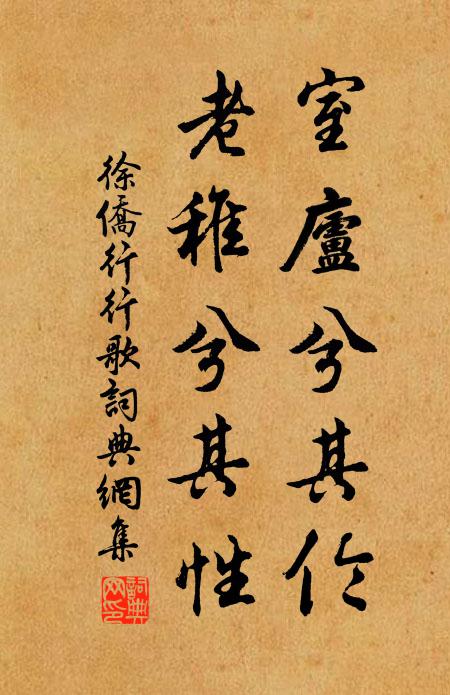 室廬兮其伶
老稚兮其性
徐僑行行歌詞典網集
詞典
网印